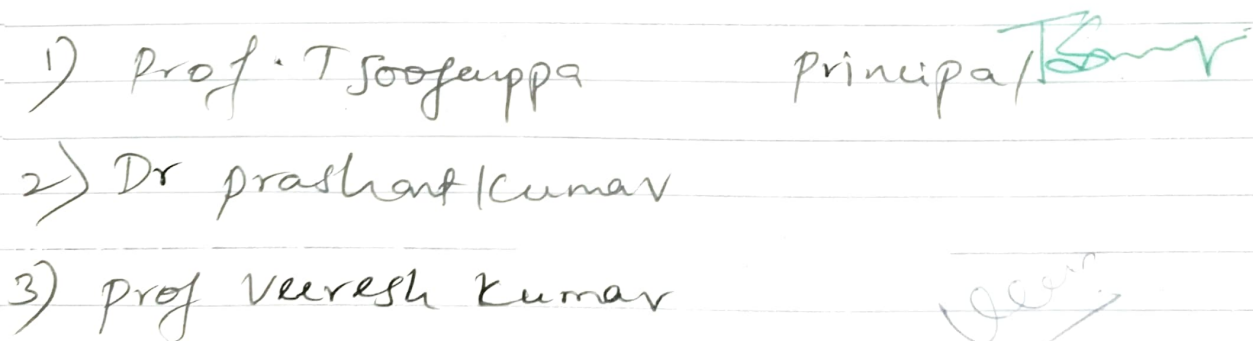 1) Prof. T Principal
2) Dr prashant Kumar
3) prof Veeresh Kumar